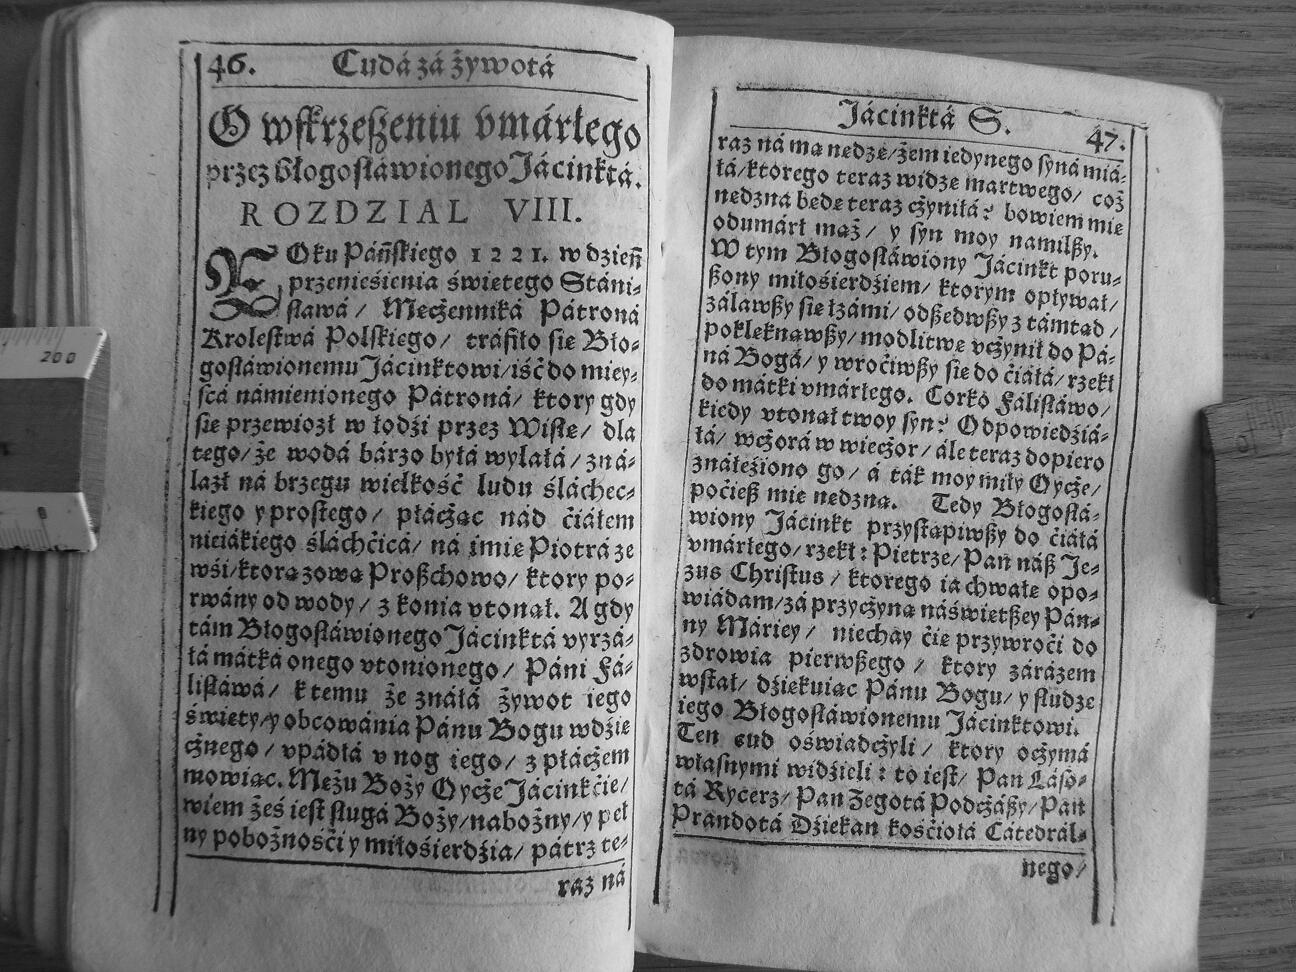 46. Cudá zá żywotá
O wskrzeszeniu vmárłego
przez Błogosłáwionego Jácinktá.
ROZDZIAL VIII.
ROku Páńskiego 1221. w dzień
przenieśienia świetego Stáni-
sławá / Męcżenniká Pátroná
Krolestwá Polskiego / tráfiło sie Bło-
gosłáwionemu Jácinktowi / iść do miey-
scá námienionego Pátroná / ktory gdy
sie przewiozł w łodźi przez Wisłe / dla
tego / że wodá bárzo byłá wylałá / zná-
lazł ná brzegu wielkość ludu śláchec-
kiego y prostego / płácżąc nád ćiáłem
nieiákiego śláchćicá / ná imie Piotrá ze
wśi / ktorą zową Proszchowo / ktory po-
rwány od wody / z konia vtonął. A gdy
tám Błogosłáwionego Jácinktá vyrzá-
łá mátká onego vtonionego / Páni Fá-
lisłáwá / k temu że znáłá żywot iego
świety / y obcowánia Pánu Bogu wdźie
cżnego / vpádłá v nog iego / z płácżem
mowiąc. Mężu Boży Oycże Jácinkćie /
wiem żeś iest sługá Boży / nabożny / y peł
ny pobożnośći y miłośierdźia / pátrz te-
raz ná
Jácinktá S. 47.
raz ná mą nedze / żem iedynego syná miá-
łá / ktorego teraz widze martwego / coż
nedzna bede teraz cżyniłá? bowiem mie
odumárł mąż / y syn moy namilszy.
W tym Błogosłáwiony Jácinkt poru-
szony miłośierdźiem / ktorym opływał /
zálawszy sie łzámi / odszedwszy z támtąd /
poklęknąwszy / modlitwe vcżynił do Pá-
ná Bogá / y wroćiwszy sie do ćiáłá / rzekł
do mátki vmárłego. Corko Fálisłáwo /
kiedy vtonął twoy syn? Odpowiedźiá-
łá / wcżorá w wiecżor / ále teraz dopiero
ználeźiono go / á ták moy miły Oycże /
poćiesz mie nedzną. Tedy Błogosłá-
wiony Jácinkt przystąpiwszy do ćiáłá
vmárłego / rzekł: Pietrze / Pan nász Je-
zus Christus / ktorego ia chwałe opo-
wiádam / zá przycżyną náświetszey Pán-
ny Máriey / niechay ćie przywroći do
zdrowia pierwszego / ktory zárázem
wstał / dźiekuiąc Pánu Bogu / y słudze
iego Błogosłáwionemu Jácinktowi.
Ten cud oświadcżyli / ktory ocżymá
własnymi widźieli: to iest / Pan Láso-
tá Rycerz / Pan Zegotá Podcżászy / Pan
Prándotá Dźiekan kośćiołá Cátedrál-
nego /